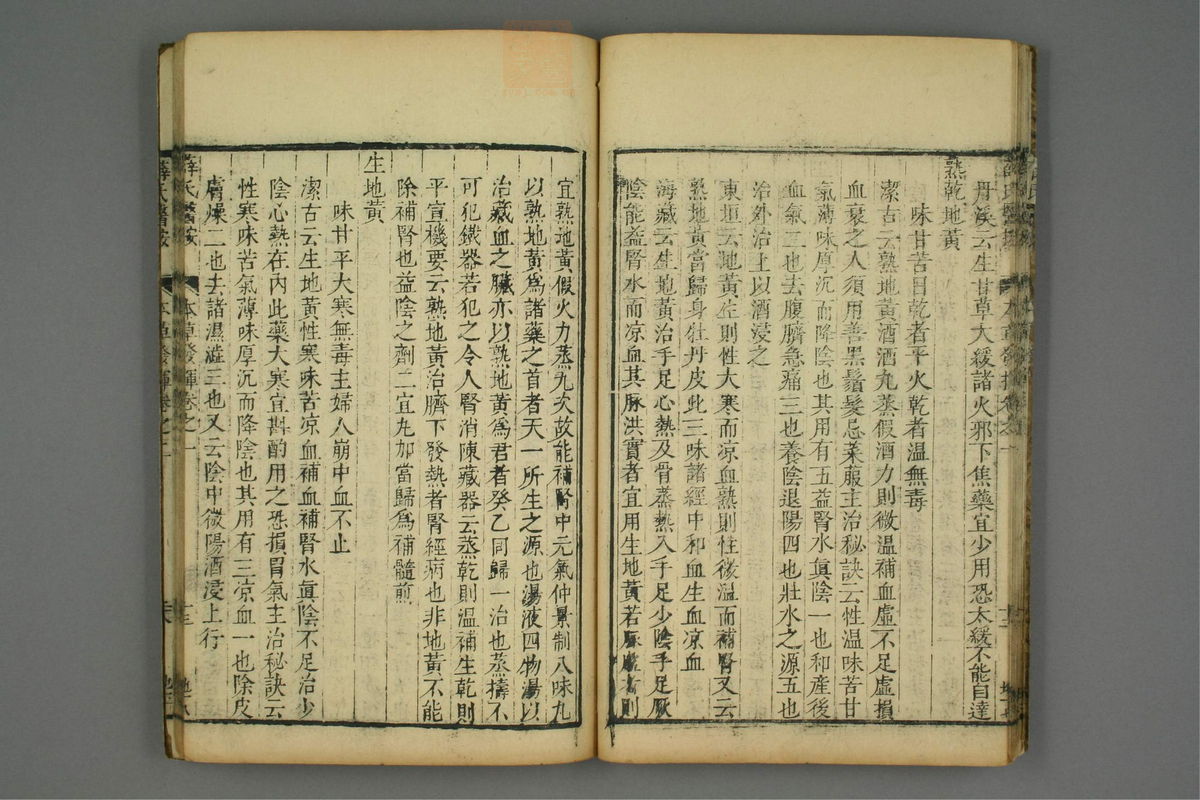 丹溪云生甘草大緩諸火邪下焦藥宜少用恐太緩不能自達
熟乾地黃
味甘苦日乾者平火乾者溫無毒
潔古云熟地黃酒洒九蒸假酒力則微溫補血虛不足虛損
血衰之人須用善黑鬚髮忌萊菔主治秘訣云性溫味苦甘
氣薄味厚沉而降陰也其用有五益腎水真陰一也和產後
血氣二也去腹臍急痛三也養陰退陽四也壯水之源五也
治外治上以酒浸之
東垣云地黃生則性大寒而凉血熟則性後溫而補腎又云
熟地黃當歸身牡丹皮此三味諸經中和血生血凉血
海藏云生地黃治手足心熱及骨蒸熱入手足少陰手足厥
陰能益腎水而凉血其脉洪實者宜用生地黃若脉虛者則
宜熟地黃假火力蒸九次故能補腎中元氣仲景制八味丸
以熟地黃為諸藥之首者天一所生之源也湯液四物湯以
治藏血之臟亦以熟地黃為君者癸乙同歸一治也蒸擣不
可犯鐵器若犯之令人腎消陳藏器云蒸乾則溫補生乾則
平宣機要云熟地黃治臍下發熱者腎經病也非地黃不能
除補腎也益陰之劑二宜丸加當歸為補髓煎
生地黃
味甘平大寒無毒主婦人崩中血不止
潔古云生地黃性寒味苦凉血補血補腎水真陰不足治少
陰心熱在內此藥大寒宜斟酌用之恐損胃氣主治秘訣云
性寒味苦氣薄味厚沉而降陰也其用有三凉血一也除皮
膚燥二也去諸濕澁三也又云陰中微陽酒浸上行
薛氏醫按 本草發揮卷之一